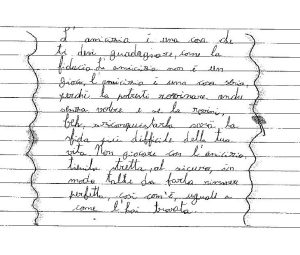 L'
amicizia è una cosa che
ti devi guadagnare, come la
fiducia di amicizia non è un
gioco, l'amicizia è una cosa seria,
perché la potresti rovinare anche
senza volere e se la rovini,
beh, riconquistarla sarà la
sfida più difficile della tua
vita Non giocare con l'amicizia
tienila stretta, al sicuro, in
modo tale da farla rimanere
perfetta, così com'è, uguale a
come l'hai trovata.